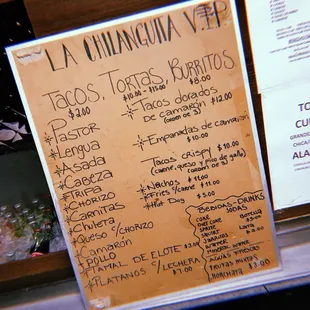 LA CHILANGUITA V.I.P
TACOS, TORTAS, BURRITOS
$2.00
$10.00 - $15.00
$8.00
*PASTOR
*Lengua
*Asada
*CABEZA
*TRIPA
*CHORIZO
*Carnitas
*Chuleta
*Queso c/CHORIZO
*Camarón
*POLLO
*TAMAL DE ELOTE $3.00
*PLATANOS c/LECHERA
$7.00
*Tacos dorados
De camarón $12.00
(orden de 3)
*Empanadas de camarón
$10.00
Tacos crispy $10.00
(carne, queso y pico de gallo)
(orden de 3)
*Nachos $11.00
*Fries c/carne $11.00
*Hot Dog $5.00
BEBIDAS-DRINKS
SODAS
COKE
SPRITE
JARRITOS
WATER
MINERAL WATER
BOTELLA
$3.00
LATA
$2.00
AGUAS FRESCAS
HORCHATA $3.00
TO
CU
GRANDE
CHICA
ALA